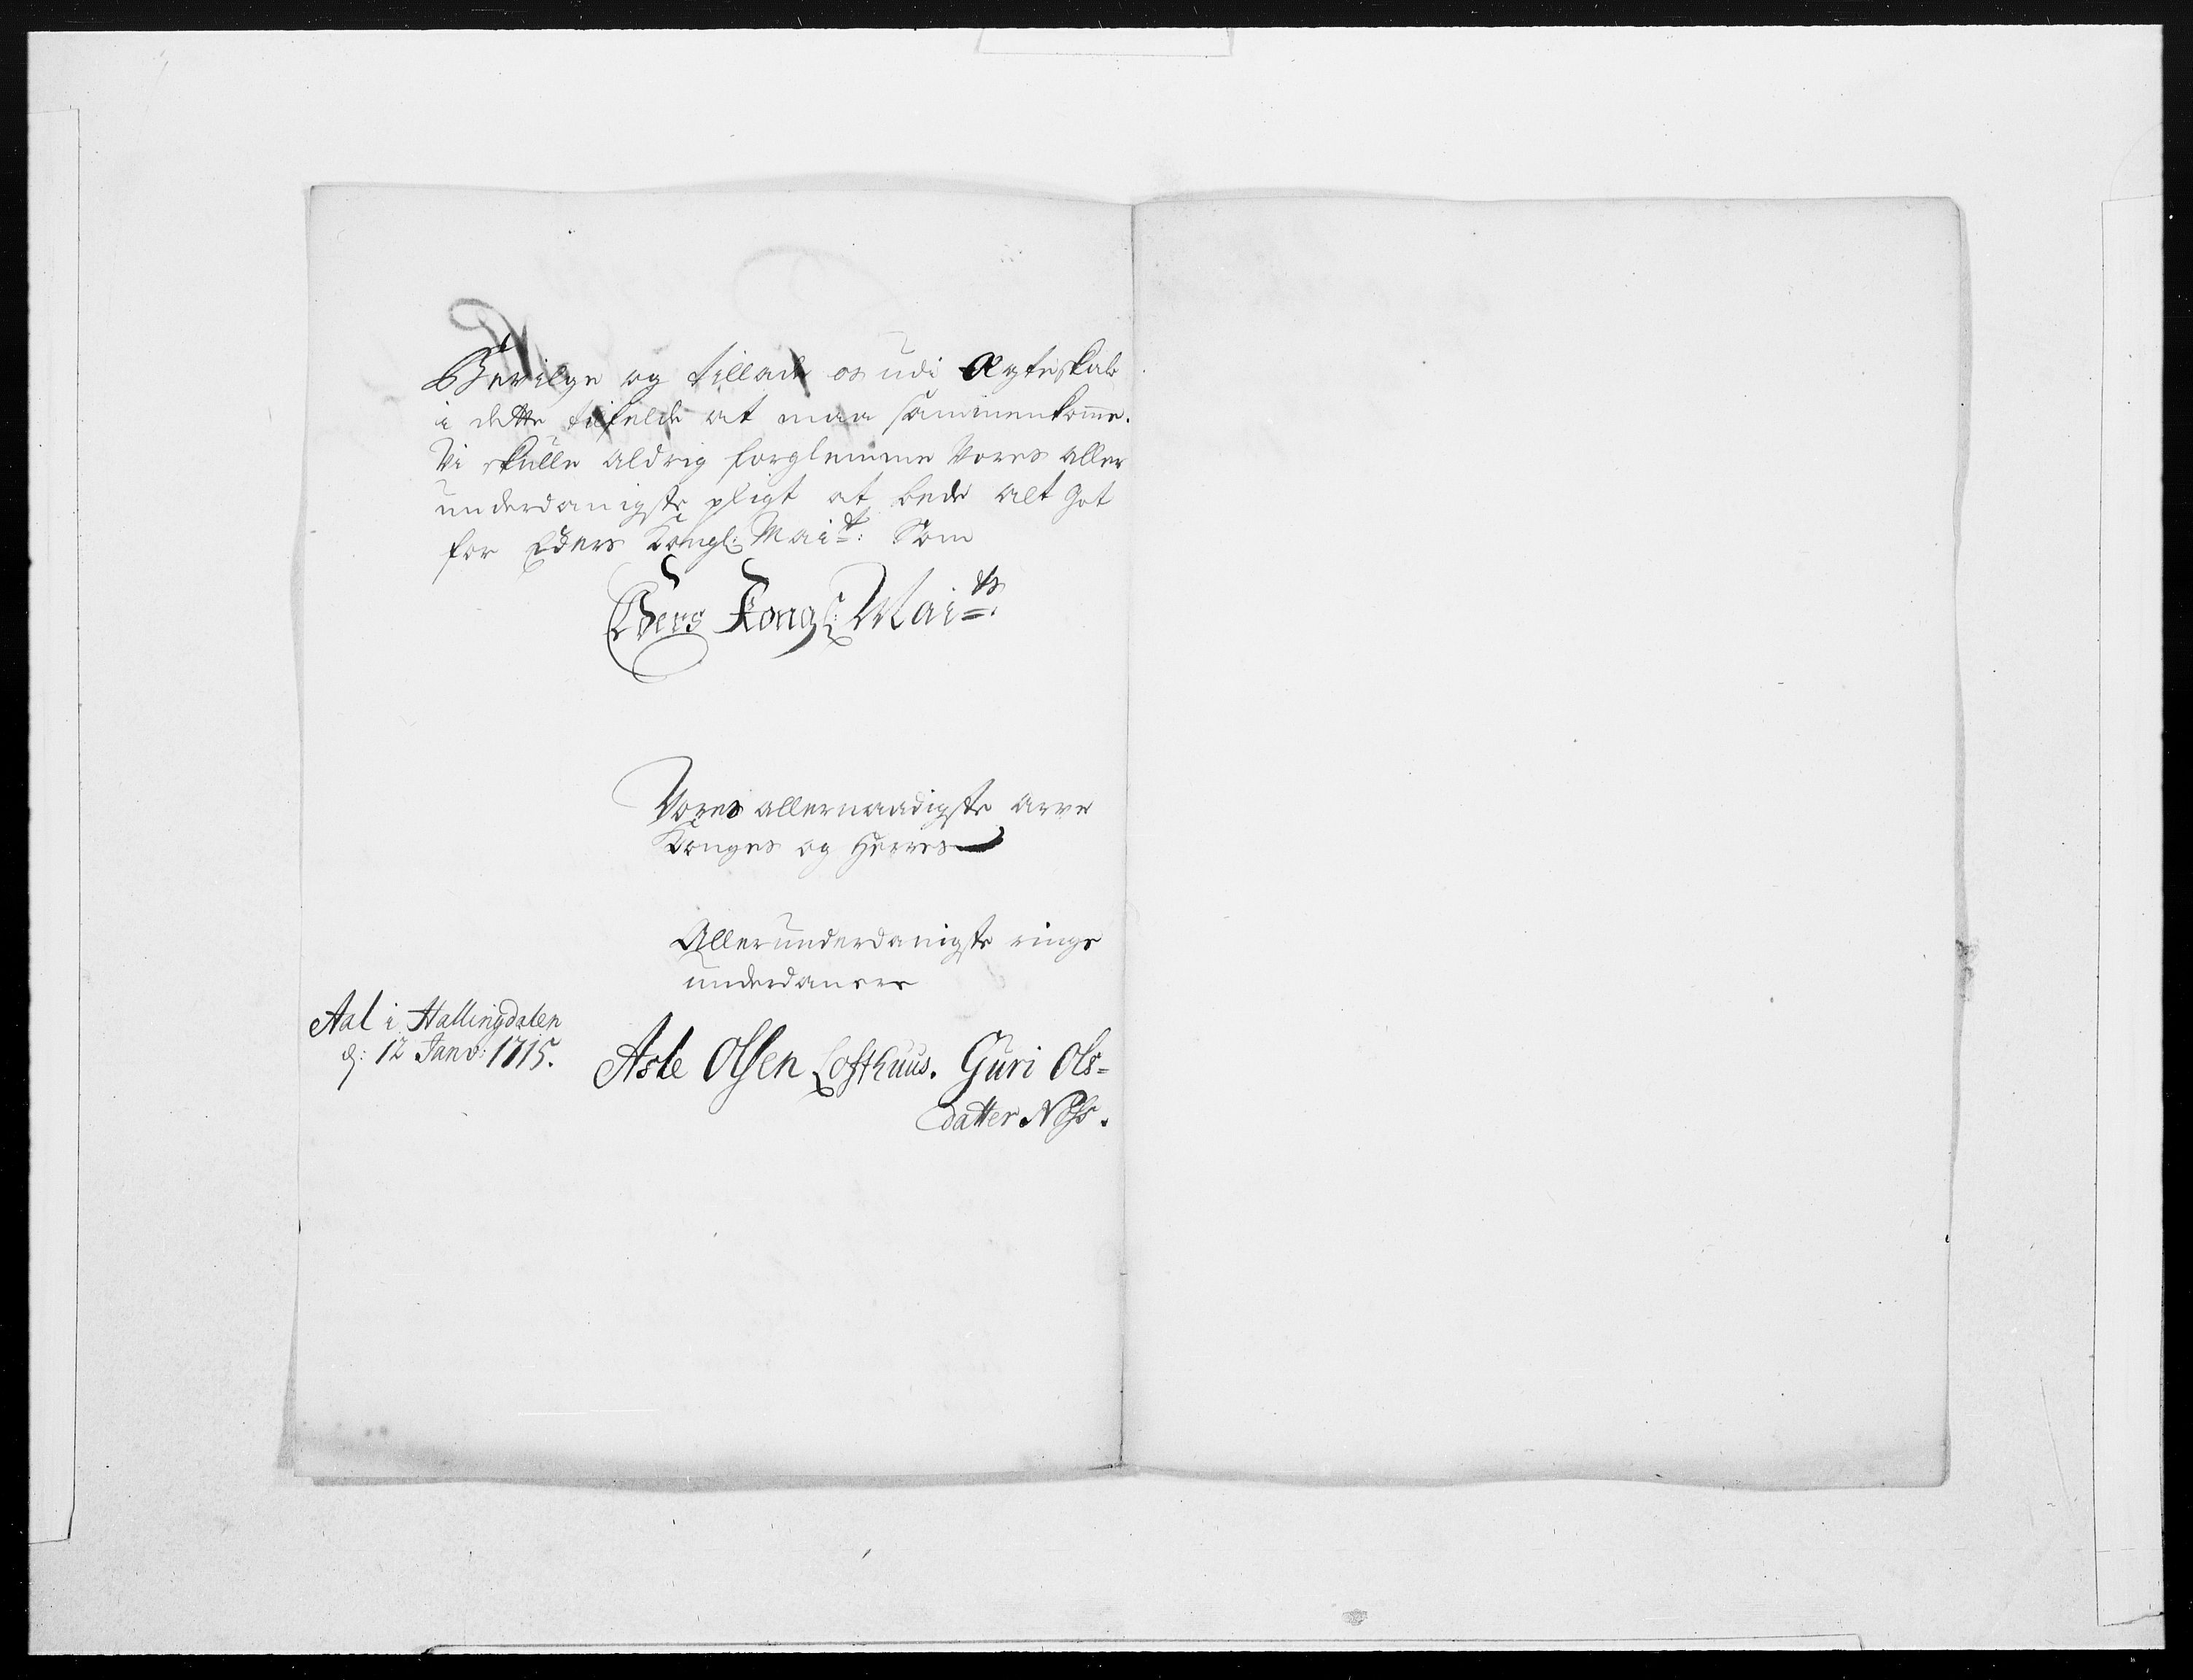 Bevilge og tillade os udi Ægteskab
i dette tilfelde at maa sammenkome.
Vi skulle aldrig forglemme Vores aller
underdanigste pligt at bede alt Got
for Eders Kongl: Mai:t: Som
Eders Kongl: Mai:ts:
Vores allernaadigste Arve
Konges og Herres
Allerunderdanigste ringe
underdanere
Aal i Hallingdalen
d: 12 Janv: 1715.
Asle Olsen Lofthuus. Guri Ols=
datter Næss.